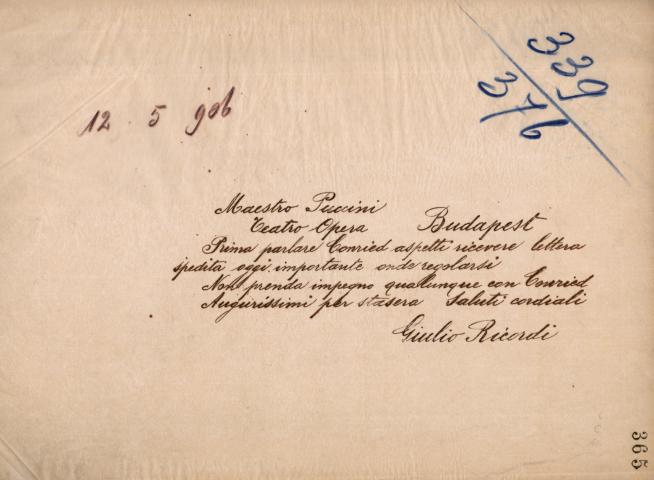 339
376
12 5 906
Maestro Puccini
Teatro Opera Budapest
Prima parlare Conried aspetti ricevere lettera
spedita oggi importante onde regolarsi
Non prenda impegno qualunque con Conried
Augurissimi per stasera Saluti cordiali
Giulio Ricordi
365